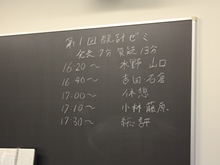 第1回 設計ゼミ
発表 7分 質疑 13分
16:20〜 水野 山口
16:40〜 吉田 石倉
17:00〜 休憩
17:10〜 小林 藤原
17:30〜 総評